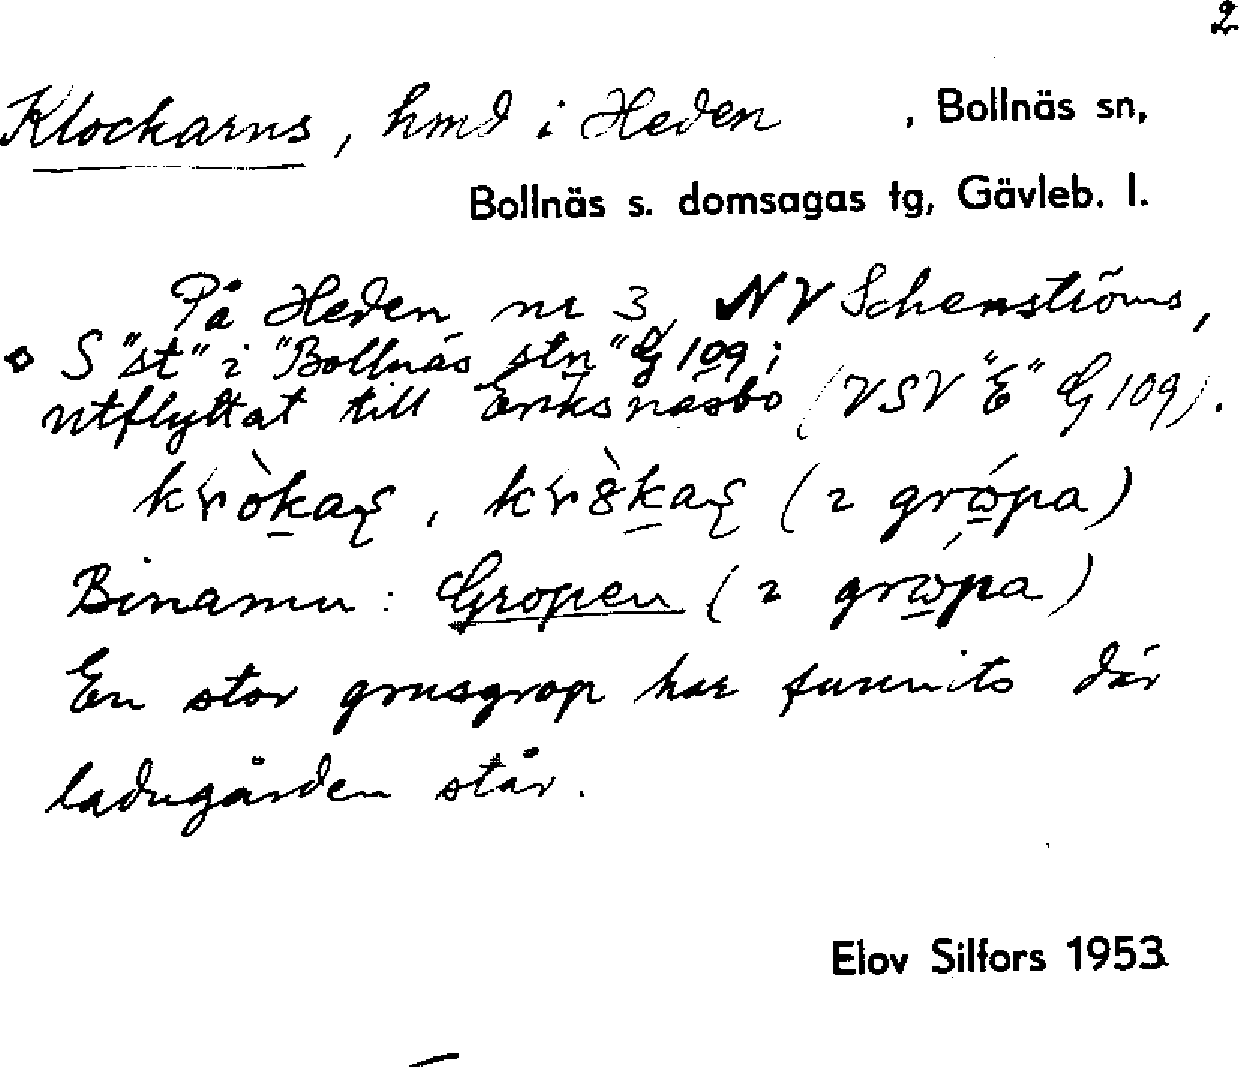 2
Klockarns, hmd i Heden , Bollnäs sn,
Bollnäs s. domsagas tg, Gävleb. l.
På Heden nr 3, NV Schenströms,
S "st" i "Bollnäs stn" G 109;
utflyttat till Eriksnäsbo (VSV "E" G 109).
(2 grópa)
Binamn: Gropen (2 grópa)
En stor grusgrop har funnits där
ladugården står.
Elov Silfors 1953